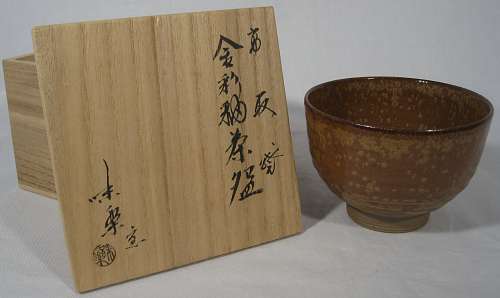 高取焼
金彩釉茶盌
味楽窯